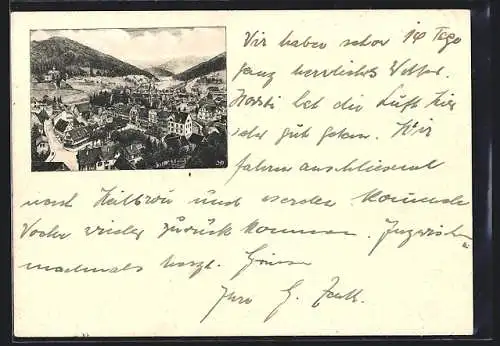 Wir haben schon 14 Tage
ganz herrliches Wetter.
hat die Luft hier
sehr gut getan. Wir
fahren anschliessend
nach Heilbronn und werden kommende
Woche wieder zurück kommen. Inzwischen
nochmals herzl. Grüsse
Ihre G.